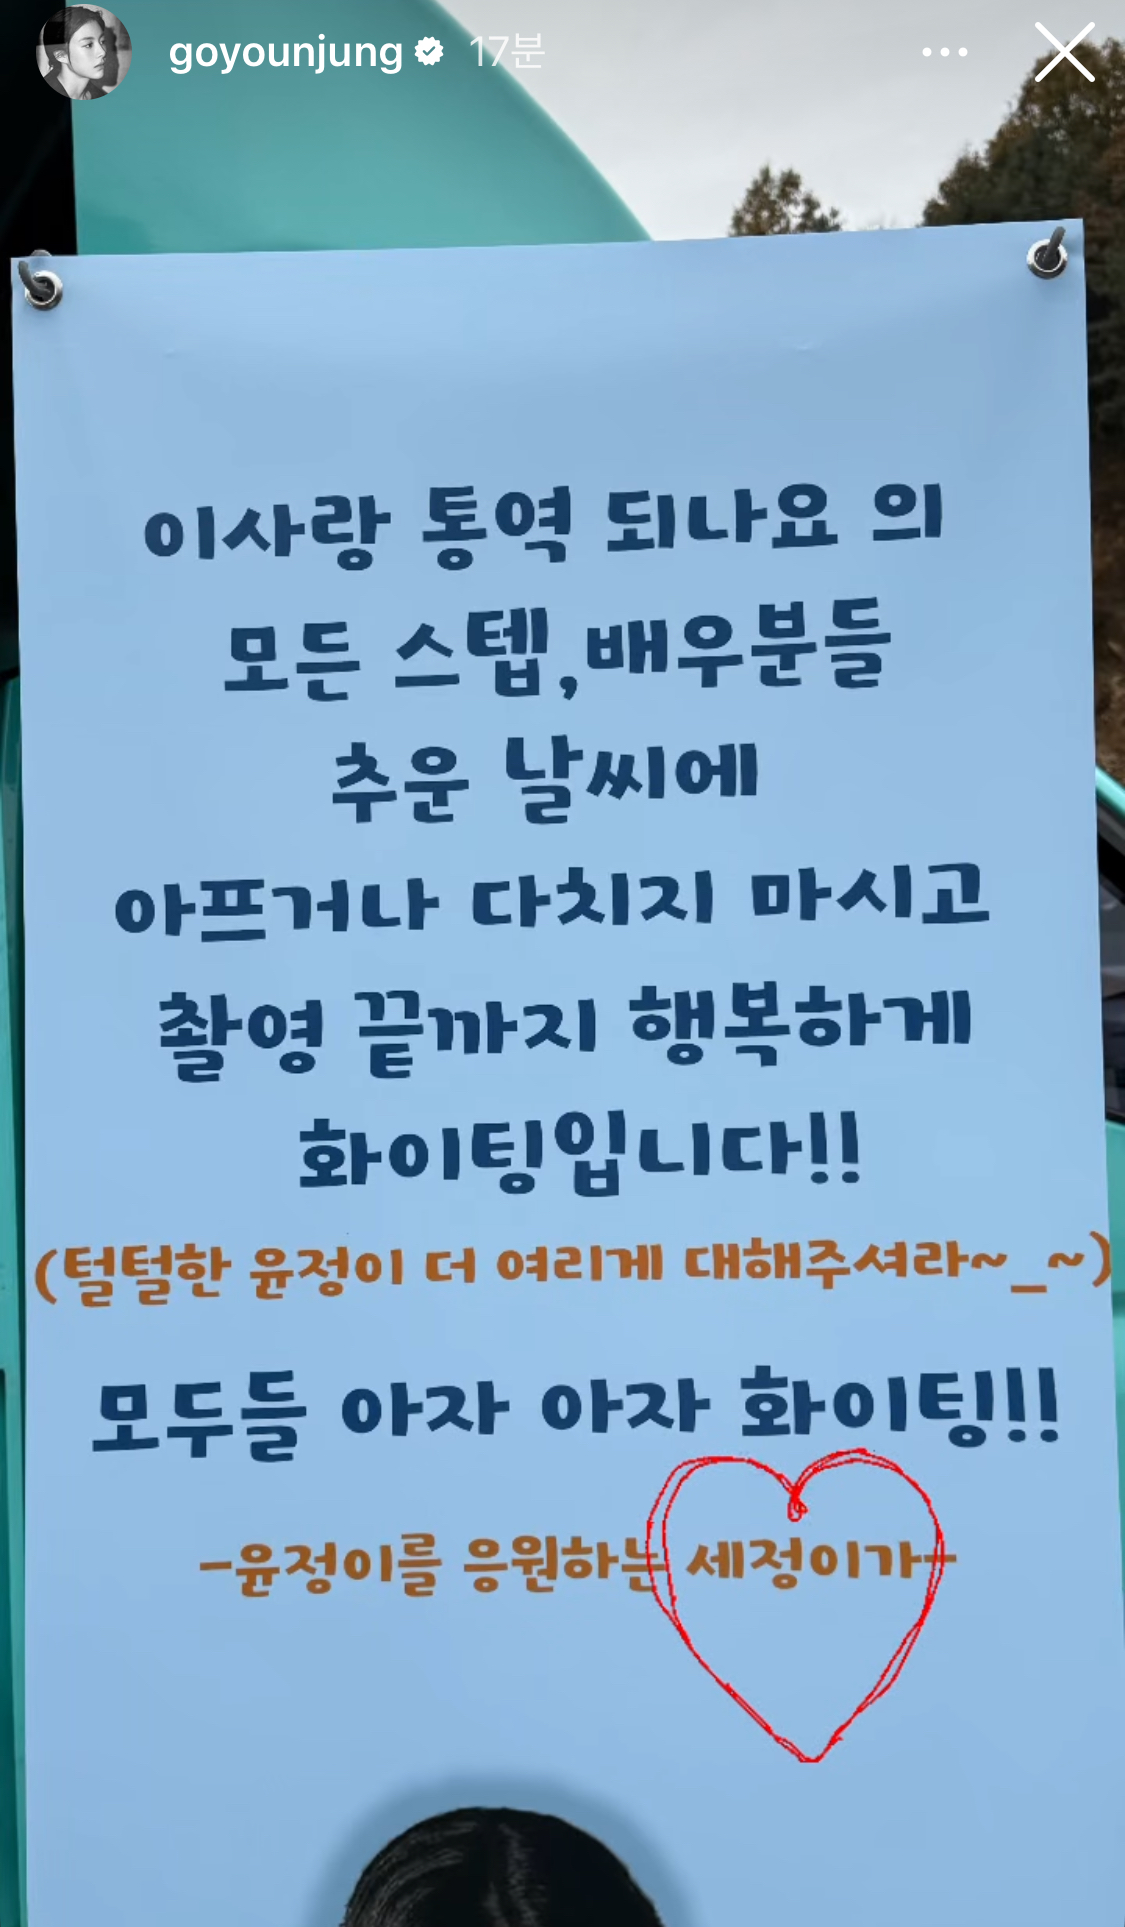 goyounjung 17분
이사랑 통역 되나요 의
모든 스텝,배우분들
추운 날씨에
아프거나 다치지 마시고
촬영 끝까지 행복하게
화이팅입니다!!
(털털한 윤정이 더 여리게 대해주셔라~_~)
모두들 아자 아자 화이팅!!!
-윤정이를 응원하는 세정이가-